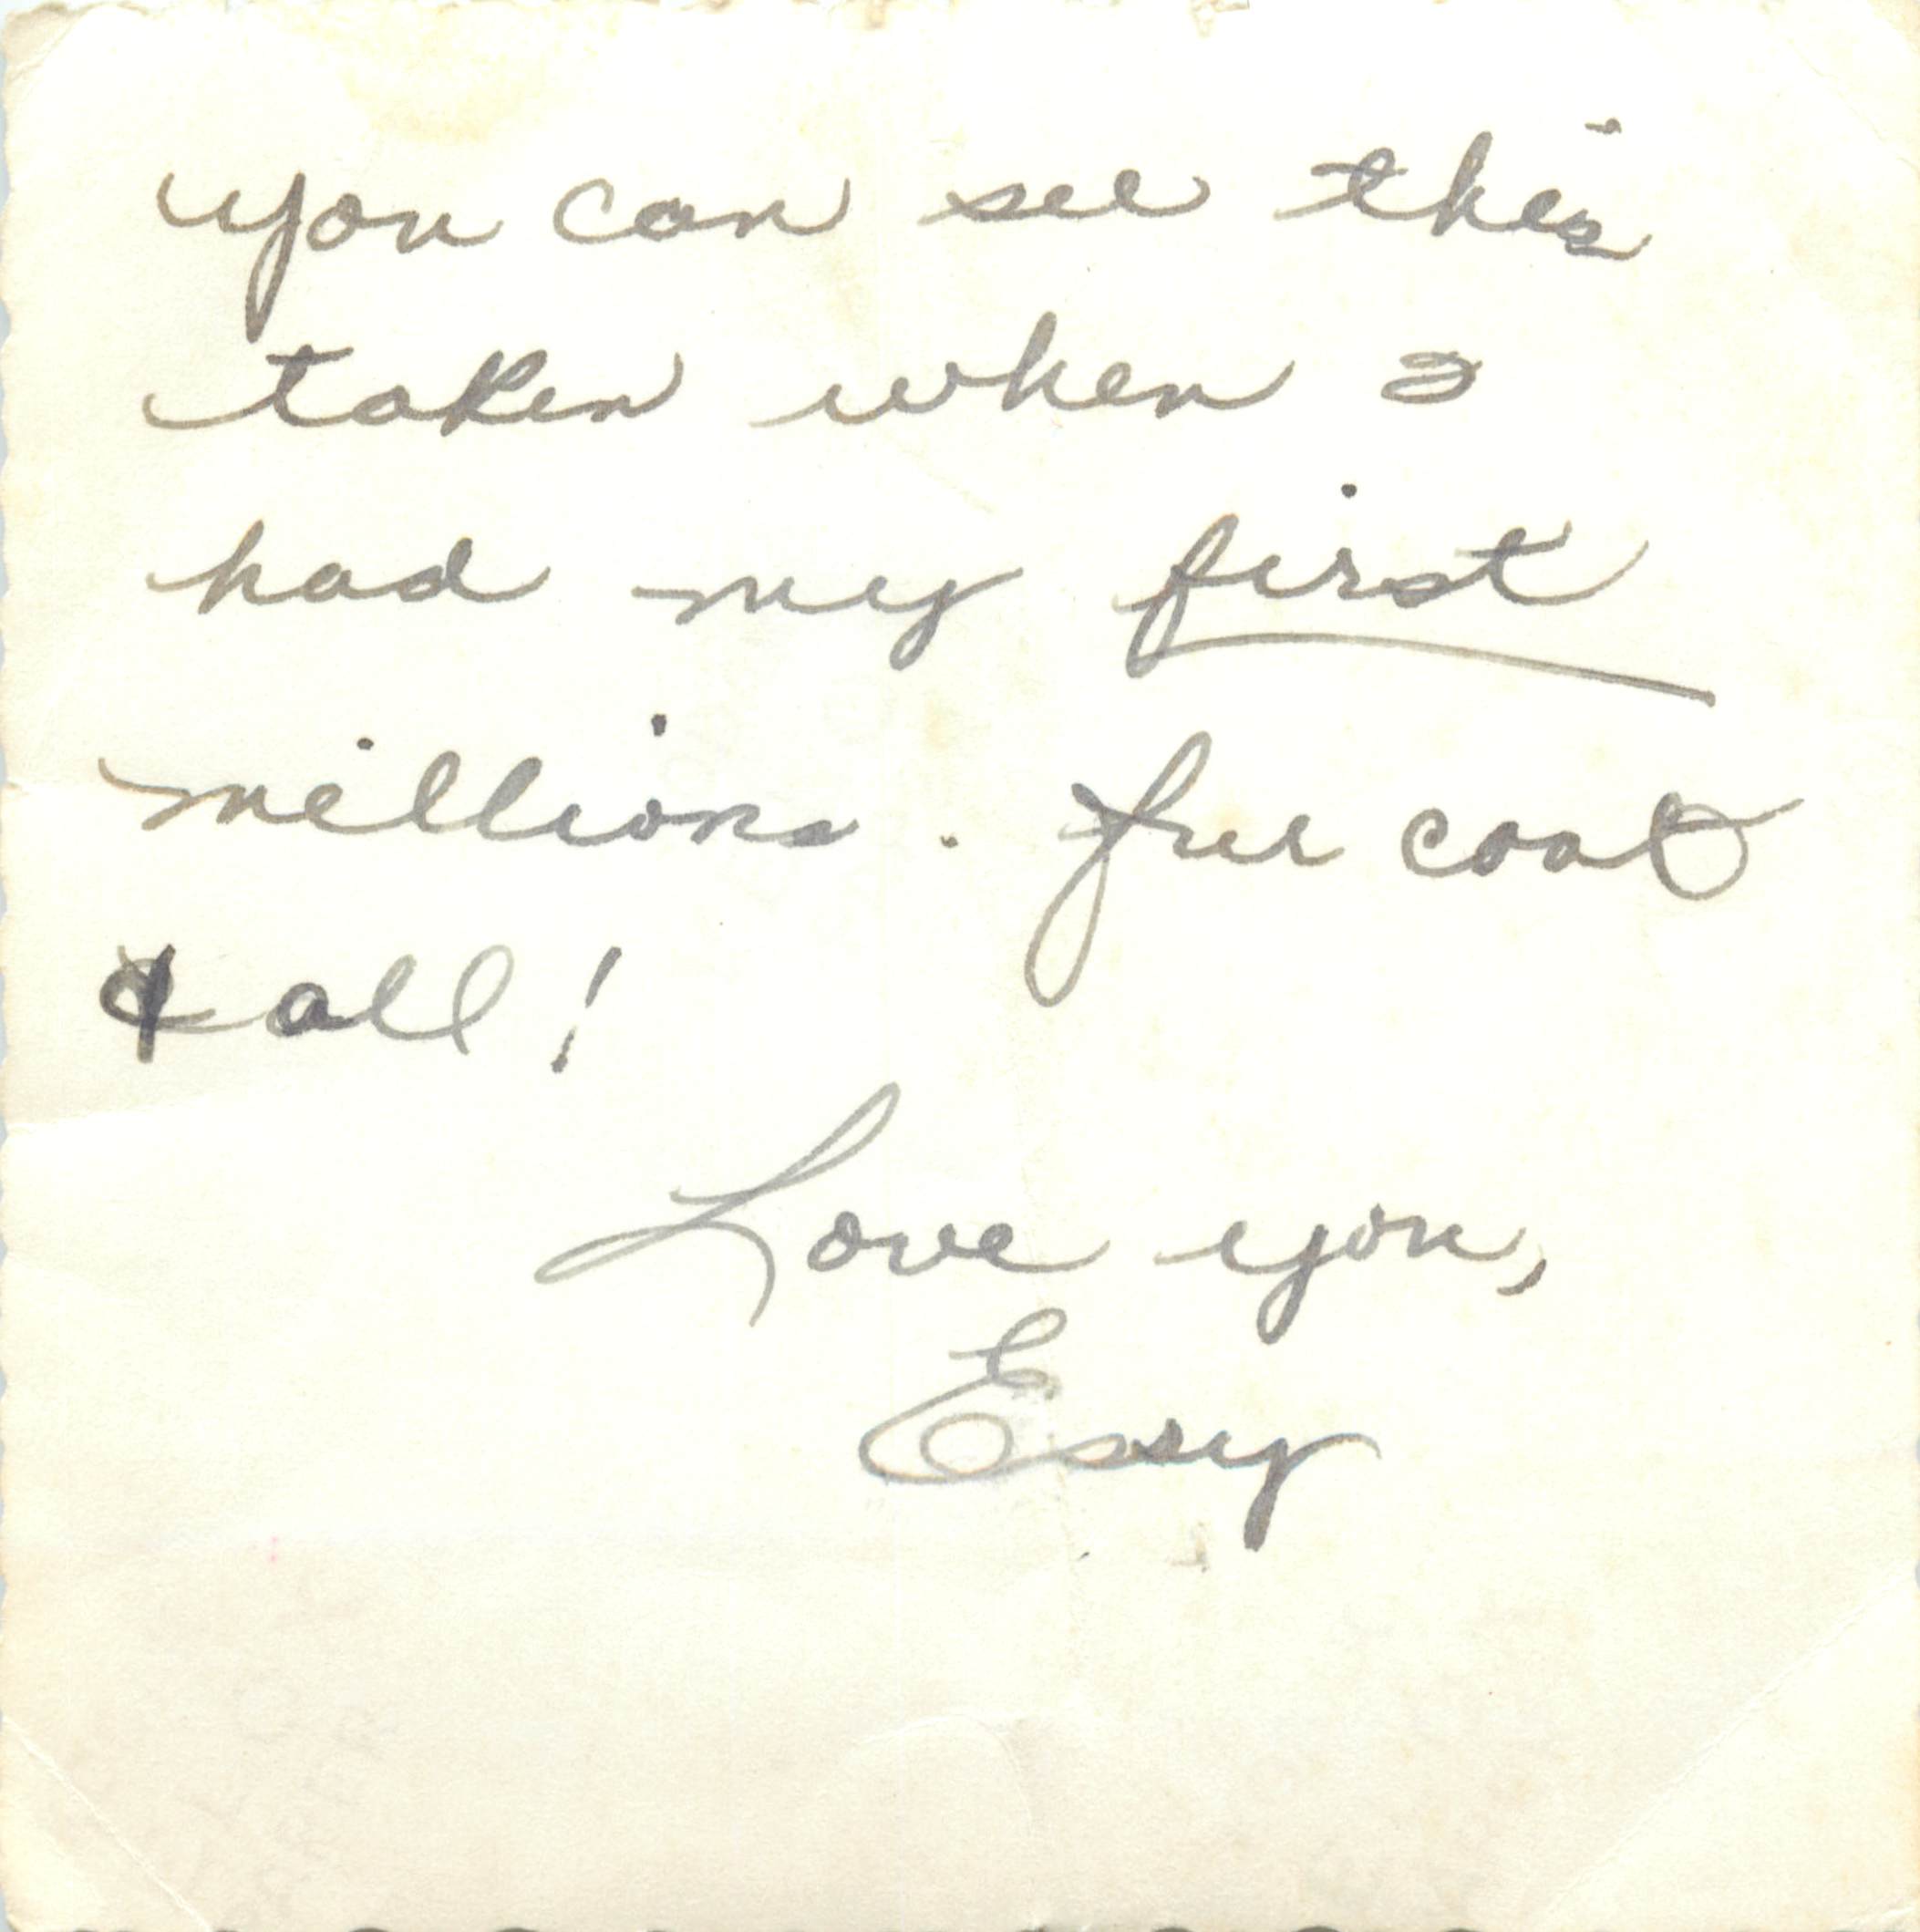 you can see this
taken when I
had my first
millions. Fur coat
& all!
Love you,
Essy